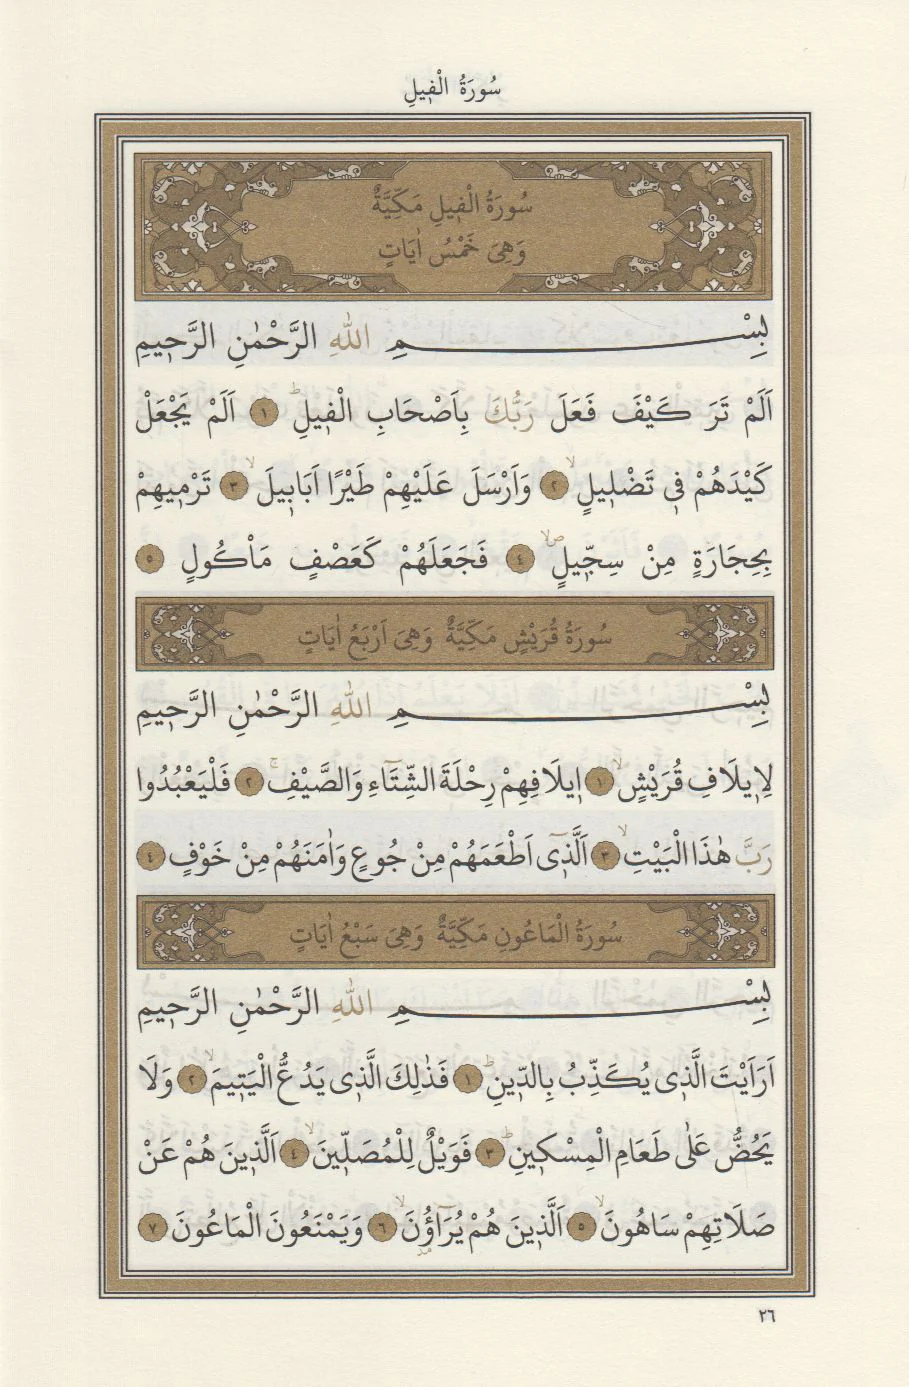 سُورَةُ الْفِيلِ
سُورَةُ الْفِيلِ مَكِّيَّةٌ
وَهِىَ خَمْسُ اٰيَاتٍ
بِسْمِ اللّٰهِ الرَّحْمٰنِ الرَّحِيمِ
اَلَمْ تَرَ كَيْفَ فَعَلَ رَبُّكَ بِاَصْحَابِ الْفِيلِ ۜ ﴿١﴾ اَلَمْ يَجْعَلْ
كَيْدَهُمْ فِى تَضْلِيلٍ ۙ ﴿٢﴾ وَاَرْسَلَ عَلَيْهِمْ طَيْرًا اَبَابِيلَ ۙ ﴿٣﴾ تَرْمِيهِمْ
بِحِجَارَةٍ مِنْ سِجِّيلٍ ۙ ﴿٤﴾ فَجَعَلَهُمْ كَعَصْفٍ مَاْكُولٍ ﴿٥﴾
سُورَةُ قُرَيْشٍ مَكِّيَّةٌ وَهِىَ اَرْبَعُ اٰيَاتٍ
بِسْمِ اللّٰهِ الرَّحْمٰنِ الرَّحِيمِ
لِاِيلَافِ قُرَيْشٍ ۙ ﴿١﴾ اِيلَافِهِمْ رِحْلَةَ الشِّتَٓاءِ وَالصَّيْفِ ۚ ﴿٢﴾ فَلْيَعْبُدُوا
رَبَّ هٰذَا الْبَيْتِ ۙ ﴿٣﴾ اَلَّذِٓى اَطْعَمَهُمْ مِنْ جُوعٍ وَاٰمَنَهُمْ مِنْ خَوْفٍ ﴿٤﴾
سُورَةُ الْمَاعُونِ مَكِّيَّةٌ وَهِىَ سَبْعُ اٰيَاتٍ
بِسْمِ اللّٰهِ الرَّحْمٰنِ الرَّحِيمِ
اَرَاَيْتَ الَّذِى يُكَذِّبُ بِالدِّينِ ۜ ﴿١﴾ فَذٰلِكَ الَّذِى يَدُعُّ الْيَتِيمَ ۙ ﴿٢﴾ وَلَا
يَحُضُّ عَلٰى طَعَامِ الْمِسْكِينِ ۜ ﴿٣﴾ فَوَيْلٌ لِلْمُصَلِّينَ ۙ ﴿٤﴾ اَلَّذِينَ هُمْ عَنْ
صَلَاتِهِمْ سَاهُونَ ۙ ﴿٥﴾ اَلَّذِينَ هُمْ يُرَٓاؤُنَ ۙ ﴿٦﴾ وَيَمْنَعُونَ الْمَاعُونَ ﴿٧﴾
٢٦